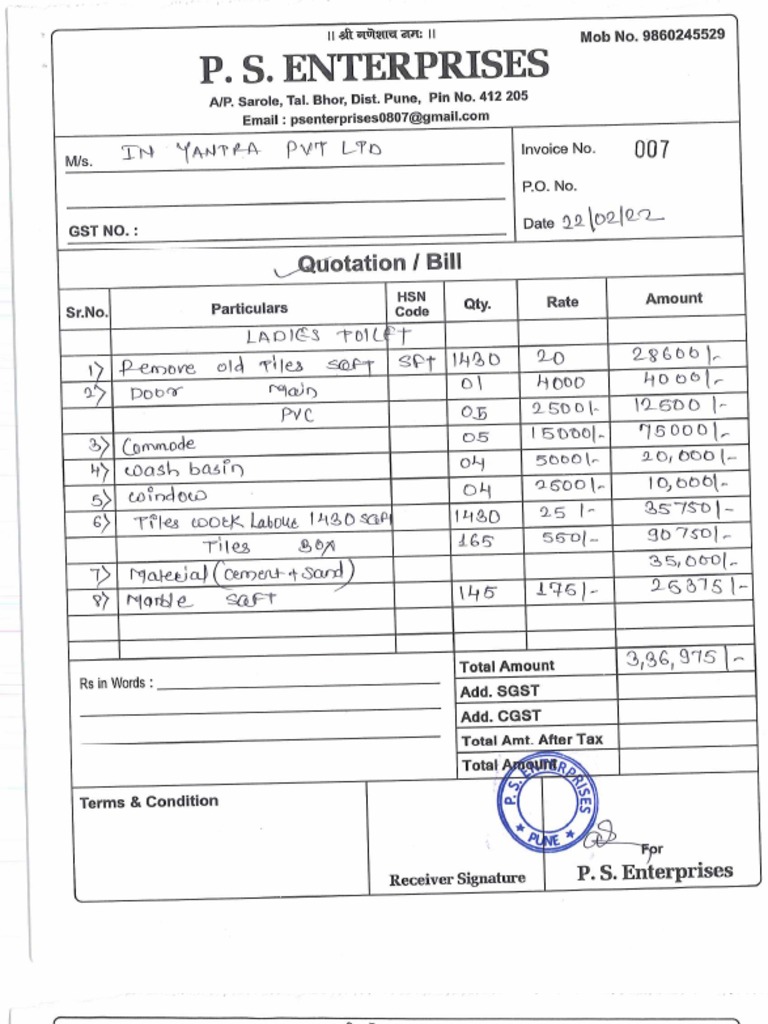 || श्री गणेशाय नमः ||
Mob No. 9860245529
P. S. ENTERPRISES
A/P. Sarole, Tal. Bhor, Dist. Pune, Pin No. 412 205
Email : psenterprises0807@gmail.com
M/s. IN YANTRA PVT LTD
Invoice No. 007
P.O. No.
GST NO. :
Date 22/02/22
Quotation / Bill
Sr.No. Particulars HSN Code Qty. Rate Amount
LADIES TOILET
1) Remove old Tiles SQFT SFT 1430 20 28600/-
2) Door Main 01 4000 4000/-
PVC 05 2500/- 12500/-
3) Commode 05 15000/- 75000/-
4) wash basin 04 5000/- 20,000/-
5) window 04 2500/- 10,000/-
6) Tiles work Labour 1430 SQFt 1430 25/- 35750/-
Tiles Box 165 550/- 90750/-
7) Material (cement + sand) 35,000/-
8) Marble SQFT 145 175/- 25375/-
Total Amount 3,36,975/-
Rs in Words :
Add. SGST
Add. CGST
Total Amt. After Tax
Total Amount
P. S. ENTERPRISES
★ PUNE ★
Terms & Condition
Receiver Signature
For
P. S. Enterprises